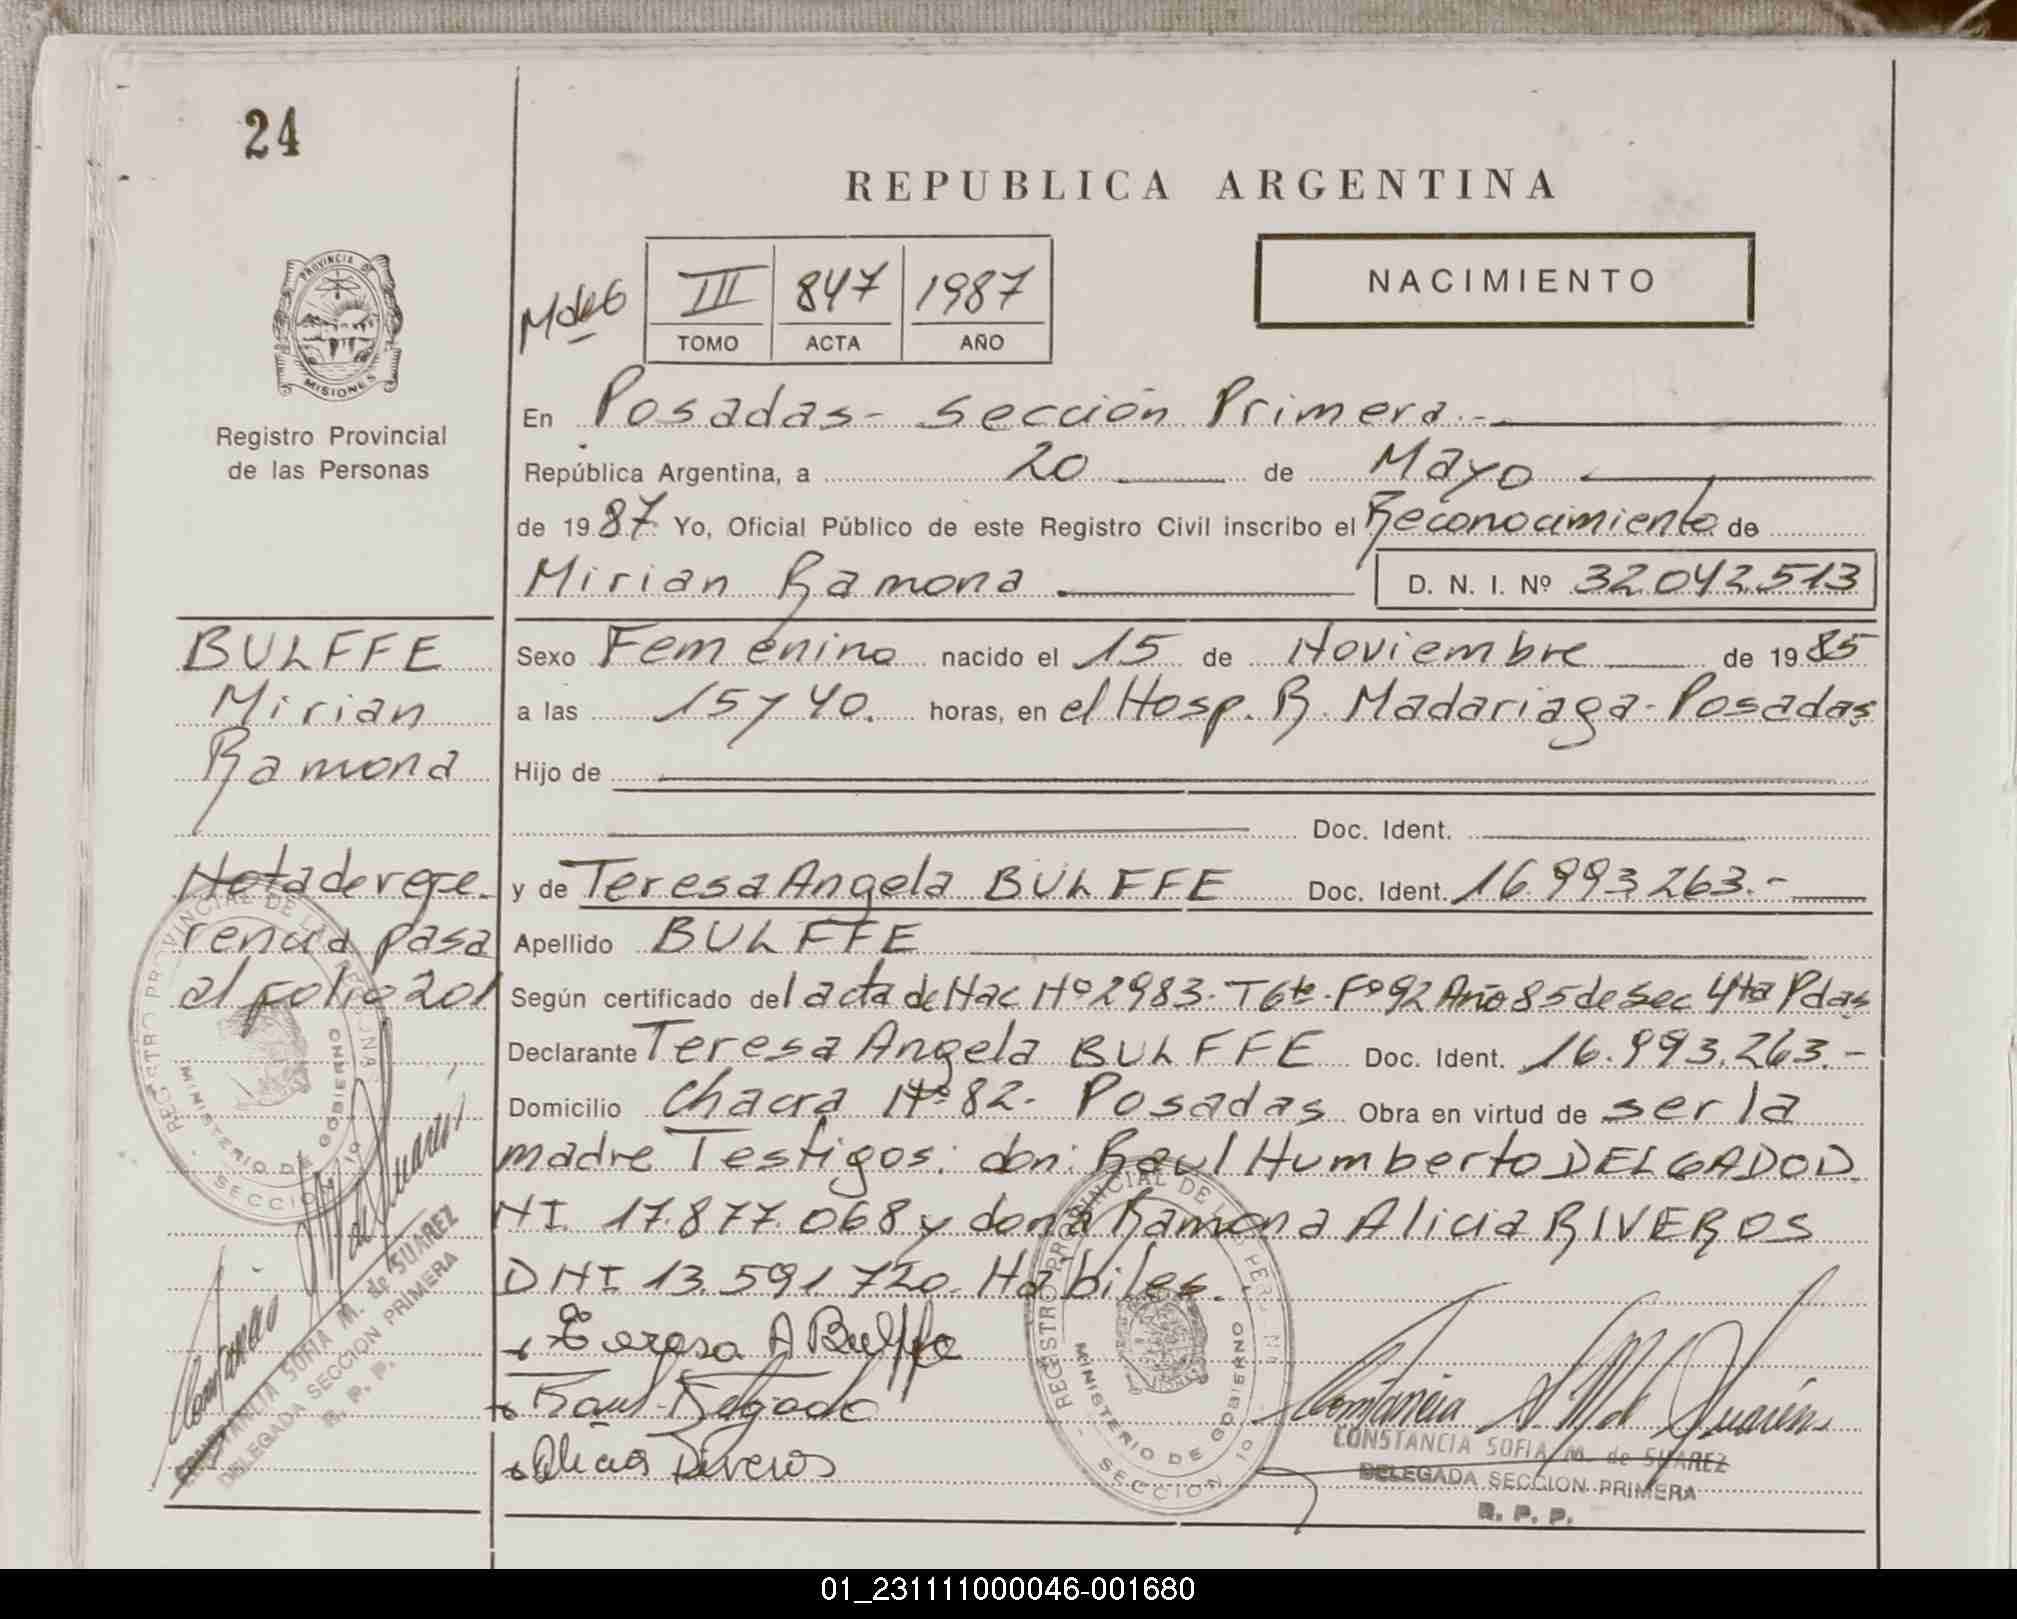 24
REPUBLICA ARGENTINA
PROVINCIA DE
MISIONES
Registro Provincial
de las Personas
MdeG
III 847 1987
TOMO ACTA AÑO
NACIMIENTO
En Posadas - Sección Primera.-
República Argentina, a 20 de Mayo
de 1987 Yo, Oficial Público de este Registro Civil inscribo el Reconocimiento de
Mirian Ramona D. N. I. Nº 32.042.513
BULFFE
Mirian
Ramona
Sexo Femenino nacido el 15 de Noviembre de 1985
a las 15 y 40. horas, en el Hosp. R. Madariaga - Posadas
Hijo de
Doc. Ident.
y de Teresa Angela BULFFE Doc. Ident. 16.993.263.-
Apellido BULFFE
Según certificado del acta de Nac Nº 2983. T 6to. Fº 92 Año 85 de Sec 4ta Pdas
Declarante Teresa Angela BULFFE Doc. Ident. 16.993.263.-
Domicilio Chacra Nº 82. Posadas Obra en virtud de ser la
madre Testigos: don: Raul Humberto DELGADO D.
NI. 17.877.068 y doña Ramona Alicia RIVEROS
DNI 13.591.720. Habiles.
Nota de refe-
rencia pasa
al folio 201
REGISTRO PROVINCIAL DE LAS PERSONAS
MINISTERIO DE GOBIERNO
SECCION 1º
Constancia S M de Suarez
CONSTANCIA SOFIA M. de SUAREZ
DELEGADA SECCION PRIMERA
R. P. P.
Teresa A Bulffe
Raul Delgado
Alicia Riveros
REGISTRO PROVINCIAL DE LAS PERSONAS
MINISTERIO DE GOBIERNO
SECCION 1º
Constancia S M de Suarez
CONSTANCIA SOFIA M. de SUAREZ
DELEGADA SECCION PRIMERA
R. P. P.
01_231111000046-001680